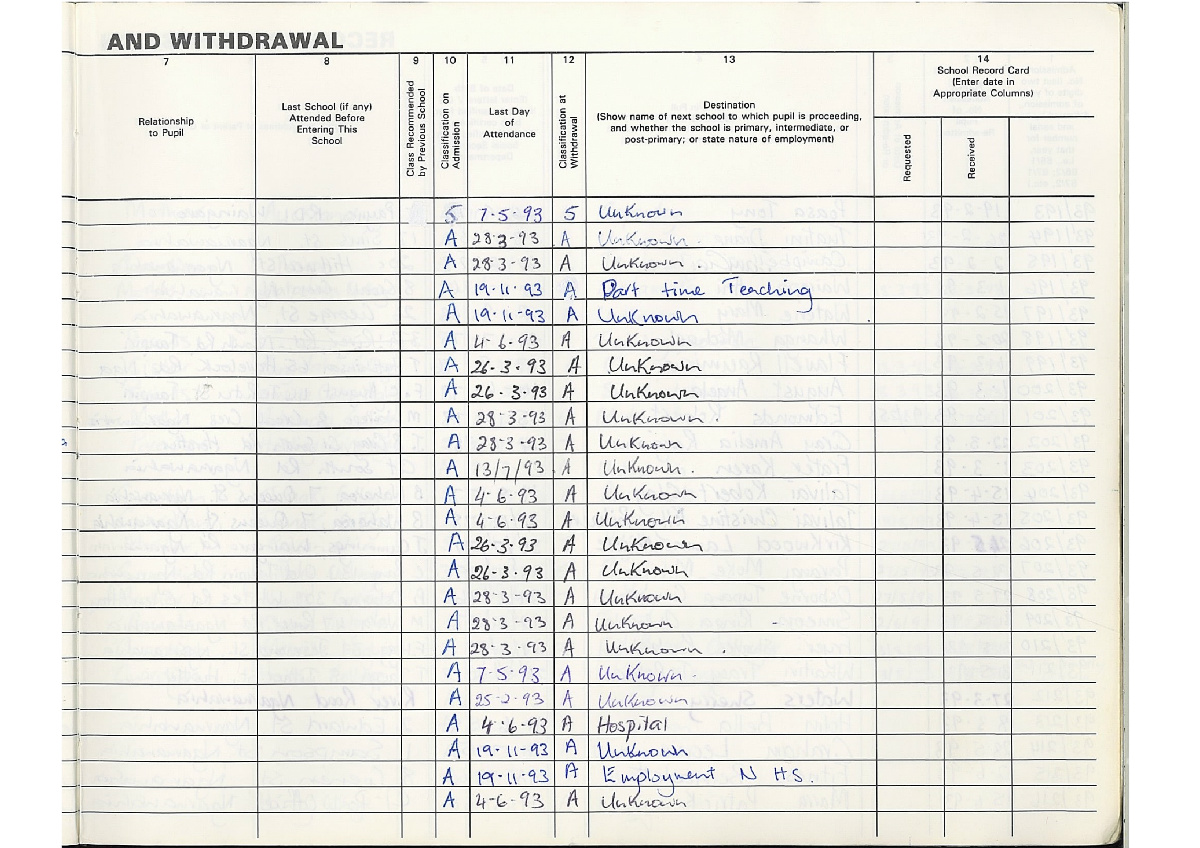 AND WITHDRAWAL
7 8 9 10 11 12 13 14
Relationship to Pupil
Last School (if any) Attended Before Entering This School
Class Recommended by Previous School
Classification on Admission
Last Day of Attendance
Classification at Withdrawal
Destination
(Show name of next school to which pupil is proceeding, and whether the school is primary, intermediate, or post-primary; or state nature of employment)
School Record Card
(Enter date in Appropriate Columns)
Requested
Received
5 7-5-93 5 Unknown
A 28-3-93 A Unknown.
A 28-3-93 A Unknown.
A 19-11-93 A Part time Teaching
A 19-11-93 A Unknown
A 4-6-93 A Unknown
A 26-3-93 A Unknown
A 26-3-93 A Unknown
A 28-3-93 A Unknown.
A 28-3-93 A Unknown
A 13/7/93 A Unknown.
A 4-6-93 A Unknown
A 4-6-93 A Unknown
A 26-3-93 A Unknown
A 26-3-93 A Unknown
A 28-3-93 A Unknown
A 28-3-93 A Unknown
A 28-3-93 A Unknown.
A 7-5-93 A Unknown.
A 25-2-93 A Unknown
A 4-6-93 A Hospital
A 19-11-93 A Unknown
A 19-11-93 A Employment N HS.
A 4-6-93 A Unknown